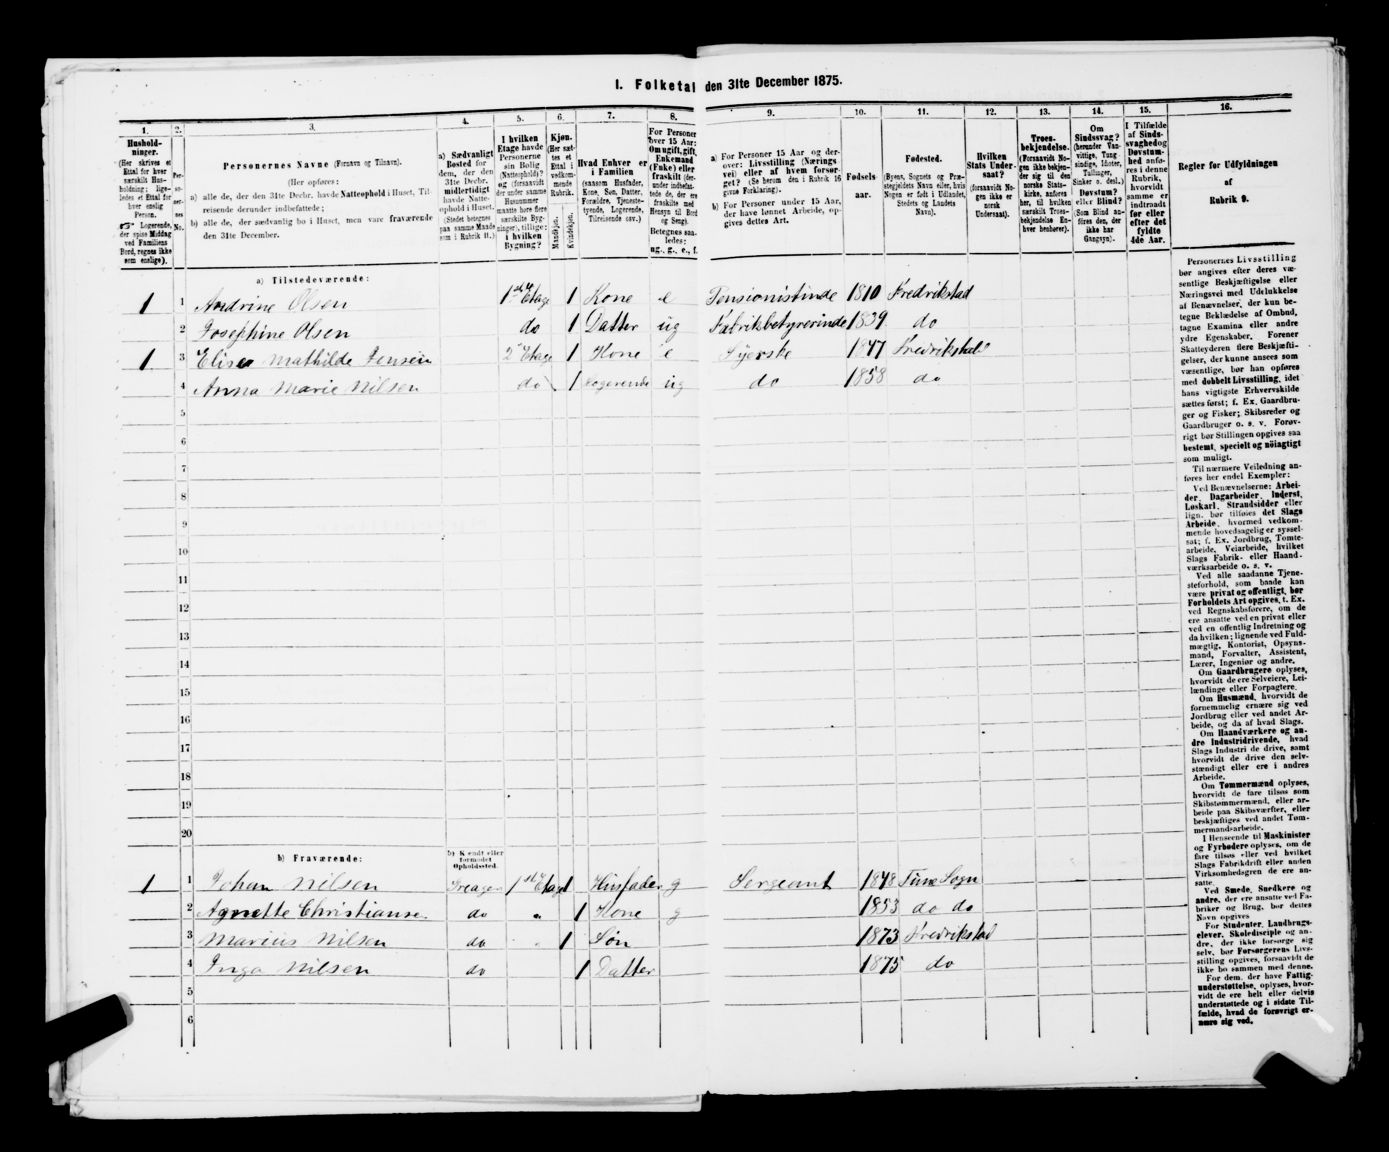 I. Folketal den 31te December 1875.
1.
Husholdninger.
(Her skrives et Ettal for hver særskilt Husholdning; ligeledes et Ettal for hver enslig Person.
Logerende, der spise Middag ved Familiens Bord, regnes ikke som enslige).
2.
Personernes No.
3.
Personernes Navne (Fornavn og Tilnavn).
(Her opføres:
a) alle de, der den 31te Decbr. havde Natteophold i Huset, Tilreisende derunder indbefattede;
b) alle de, der sædvanlig bo i Huset, men vare fraværende den 31te December.
4.
a) Sædvanligt Bosted for dem, der den 31te Decbr. midlertidigt havde Natteophold i Huset.
(Stedet betegnes paa samme Maade som i Rubrik 11.)
5.
I hvilken Etage havde Personerne sin Bolig (Natteophold)? og (forsaavidt der under samme Husnummer maatte høre flere særskilte Bygninger), tillige: i hvilken Bygning?
6.
Kjøn.
(Her sættes et Ettal i vedkommende Rubrik.
Mandkjøn.
Kvindekjøn.
7.
Hvad Enhver er i Familien
(saasom Husfader, Kone, Søn, Datter, Forældre, Tjenestetyende, Logerende, Tilreisende osv.)
8.
For Personer over 15 Aar: Om ugift, gift, Enkemand (Enke) eller fraskilt (derunder indbefattede, der ere fraskilte med Hensyn til Bord og Seng).
Betegnes saaledes: ug., g., e., f.
9.
a) For Personer 15 Aar og derover: Livsstilling (Næringsvei) eller af hvem forsørget? (Se herom den i Rubrik 16 givne Forklaring).
b) For Personer under 15 Aar, der have lønnet Arbeide, opgives dettes Art.
10.
Fødselsaar.
11.
Fødested.
(Byens, Sognets og Præstegjeldets Navn eller, hvis Nogen er født i Udlandet, Stedets og Landets Navn).
12.
Hvilken Stats Undersaat?
(forsaavidt Nogen ikke er norsk Undersaat).
13.
Troesbekjendelse.
(Forsaavidt Nogen ikke bekjender sig til den norske Statskirke, anføres her, til hvilken Troesbekjendelse Enhver henhører).
14.
Om Sindssvag? (herunder Vanvittige, Tungsindige, Idioter, Tullinger, Sinker o. desl.) Døvstum? eller Blind? (Som Blind anføres den, der ikke har Gangsyn).
15.
I Tilfælde af Sindssvaghed og Døvstumhed anføres i denne Rubrik, hvorvidt samme er indtraadt før eller efter det fyldte 4de Aar.
16.
Regler for Udfyldningen
af
Rubrik 9.
a) Tilstedeværende:
1 1 Andrine Olsen 1ste Etage 1 Kone e Pensionistinde 1810 Fredrikstad
2 Josephine Olsen do 1 Datter ug Fabriksbestyrerinde 1839 do
1 3 Elise Mathilde Jensen 2 Etage 1 Kone e Syerske 1847 Fredrikstad
4 Anna Marie Nilsen do 1 Logerende ug do 1858 do
5
6
7
8
9
10
11
12
13
14
15
16
17
18
19
20
b) Fraværende:
b) Kjendt eller formodet Opholdssted.
1 1 Johan Nilsen Preager 1ste Etage 1 Husfader g Sergeant 1848 Tune Sogn
2 Agnette Christianse do " 1 Kone g 1853 do do
3 Marius Nilsen do " 1 Søn 1873 Fredrikstad
4 Inga Nilsen do 1 Datter 1875 do
5
6
Personernes Livsstilling
bør angives efter deres væ-
sentlige Beskjæftigelse eller
Næringsvei med Udelukkelse
af Benævnelser, der kun be-
tegne Beklædelse af Ombud,
tagne Examina eller andre
ydre Egenskaber. Forener
Skatteyderen flere Beskjæfti-
gelser, der kunne ansees som
væsentlige, bør han opføres
med dobbelt Livsstilling, idet
hans vigtigste Erhvervskilde
sættes først; f. Ex. Gaardbru-
ger og Fisker; Skibsreder og
Gaardbruger o. s. v. Forøv-
rigt bør Stillingen opgives saa
bestemt, specielt og nøiagtigt
som muligt.
Til nærmere Veiledning an-
føres her endel Exempler:
Ved Benævnelserne: Arbei-
der, Dagarbeider, Inderst,
Løskarl, Strandsidder eller
lign. bør tilføies det Slags
Arbeide, hvormed vedkom-
mende hovedsagelig er syssel-
sat; f. Ex. Jordbrug, Tomte-
arbeide, Veiarbeide, hvilket
Slags Fabrik- eller Haand-
værksarbeide o. s. v.
Ved alle saadanne Tjene-
steforhold, som baade kan
være privat og offentligt, bør
Forholdets Art opgives, t. Ex.
ved Regnskabsførere, om de
ere ansatte ved en privat eller
ved en offentlig Indretning og
da hvilken; lignende ved Fuld-
mægtig, Kontorist, Opsyns-
mand, Forvalter, Assistent,
Lærer, Ingeniør og andre.
Om Gaardbrugere oplyses,
hvorvidt de ere Selveiere, Lei-
lændinge eller Forpagtere.
Om Husmænd, hvorvidt de
fornemmelig ernære sig ved
Jordbrug eller ved andet Ar-
beide, og da af hvad Slags.
Om Haandværkere og an-
dre Industridrivende, hvad
Slags Industri de drive, samt
hvorvidt de drive den selv-
stændigt eller ere i andres
Arbeide.
Om Tømmermænd oplyses,
hvorvidt de fare tilsøs som
Skibstømmermænd, eller ar-
beide paa Skibsværfter, eller
beskjæftiges ved andet Tøm-
mermandsarbeide.
I Henseende til Maskinister
og Fyrbødere oplyses, om de
fare tilsøs eller ved hvilket
Slags Fabrikdrift eller anden
Virksomhedsgren de ere an-
satte.
Ved Smede, Snedkere og
andre, der ere ansatte ved Fa-
briker og Brug, bør dettes
Navn opgives
For Studenter, Landbrugs-
elever, Skoledisciple og an-
dre, der ikke forsørge sig
selv, bør Forsørgerens Livs-
stilling opgives, forsaavidt de
ikke bo sammen med denne.
For dem, der have Fattig-
understøttelse, oplyses, hvor-
vidt de ere helt eller delvis
understøttede og i sidste Til-
fælde, hvad de forøvrigt er-
nære sig ved.